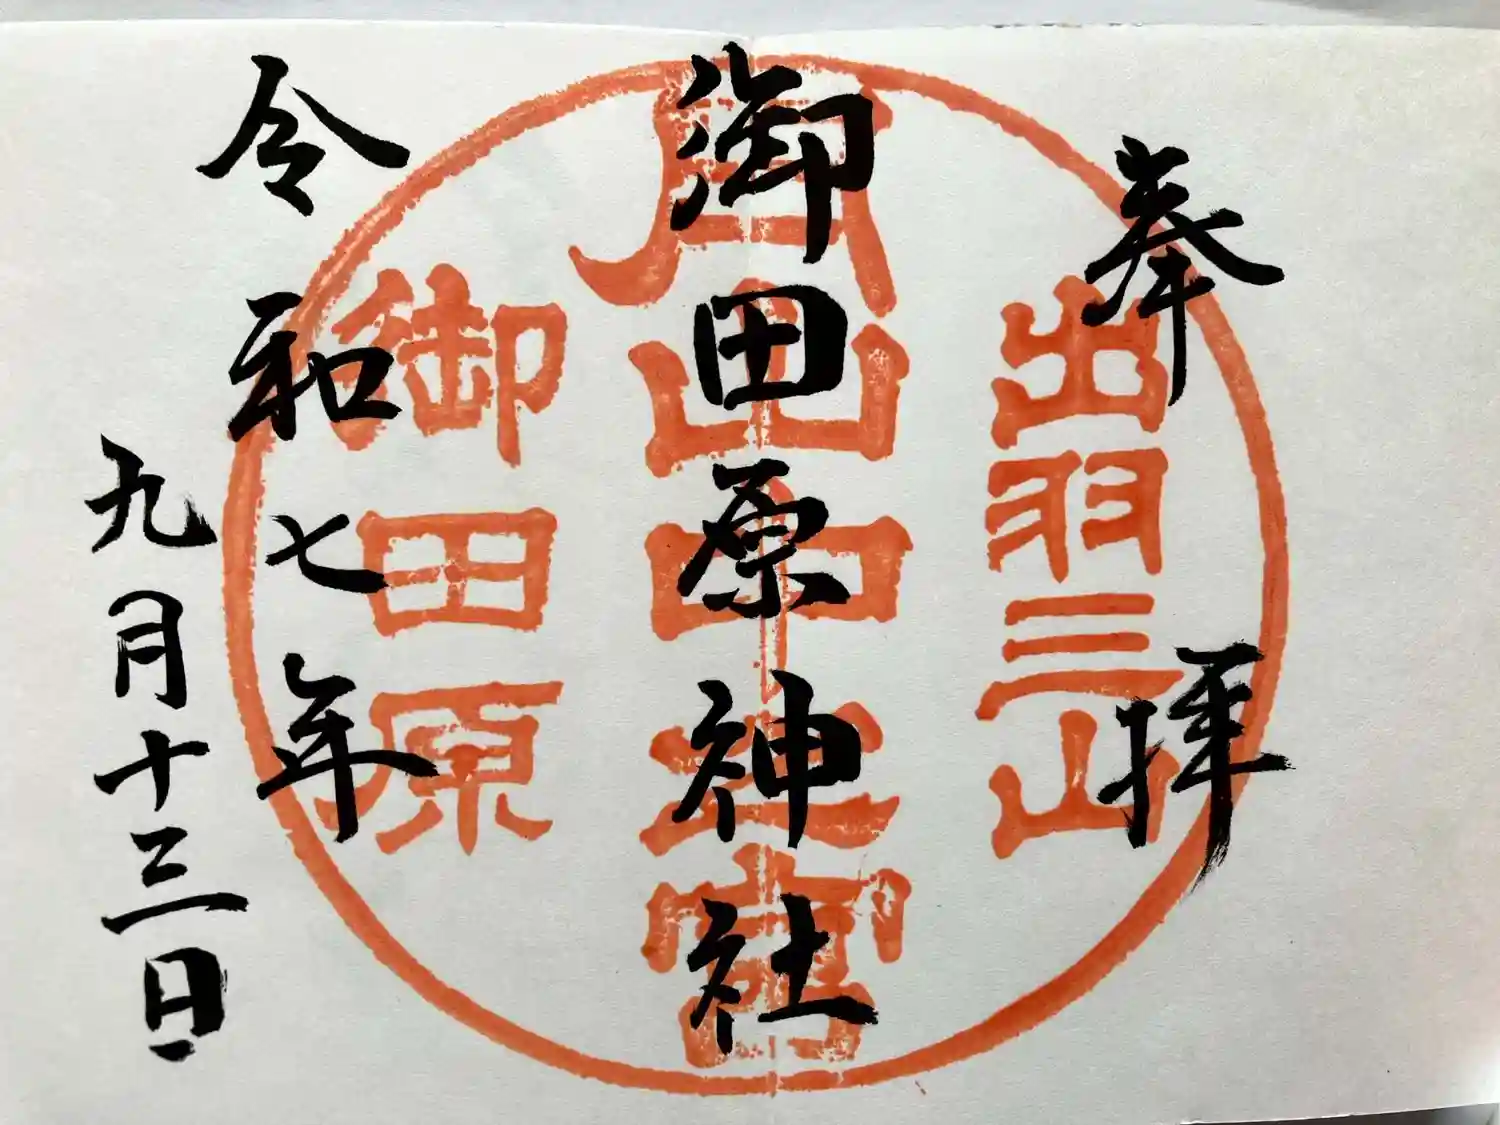 奉拝
御田原神社
令和七年
九月十三日
出羽三山
月山中之宮
御田原